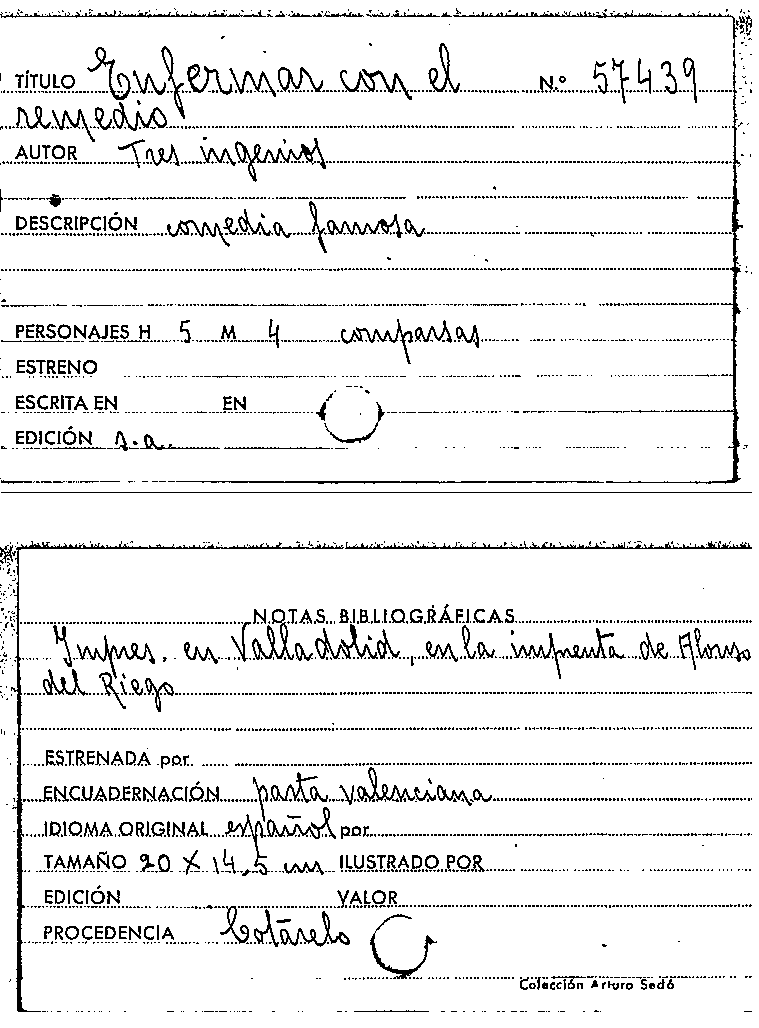 TÍTULO Enfermar con el N.º 57439
remedio
AUTOR Tres ingenios
DESCRIPCIÓN comedia famosa
PERSONAJES H 5 M 4 comparsas
ESTRENO
ESCRITA EN EN
EDICIÓN s.a.
NOTAS BIBLIOGRÁFICAS
Impres. en Valladolid, en la imprenta de Alonso
del Riego
ESTRENADA por
ENCUADERNACIÓN pasta valenciana
IDIOMA ORIGINAL español por
TAMAÑO 20 X 14,5 cm ILUSTRADO POR
EDICIÓN VALOR
PROCEDENCIA Cotarelo
Colección Arturo Sedó